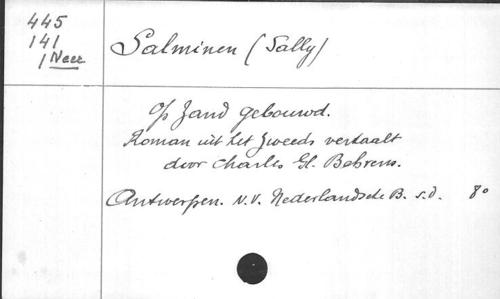 445
141
1 Neer
Salminen (Sally)
Op Zand gebouwd.
Roman uit het Zweeds vertaalt
door Charles H. Behrens.
Antwerpen. N.V. Nederlandsche B. s.d. 8°